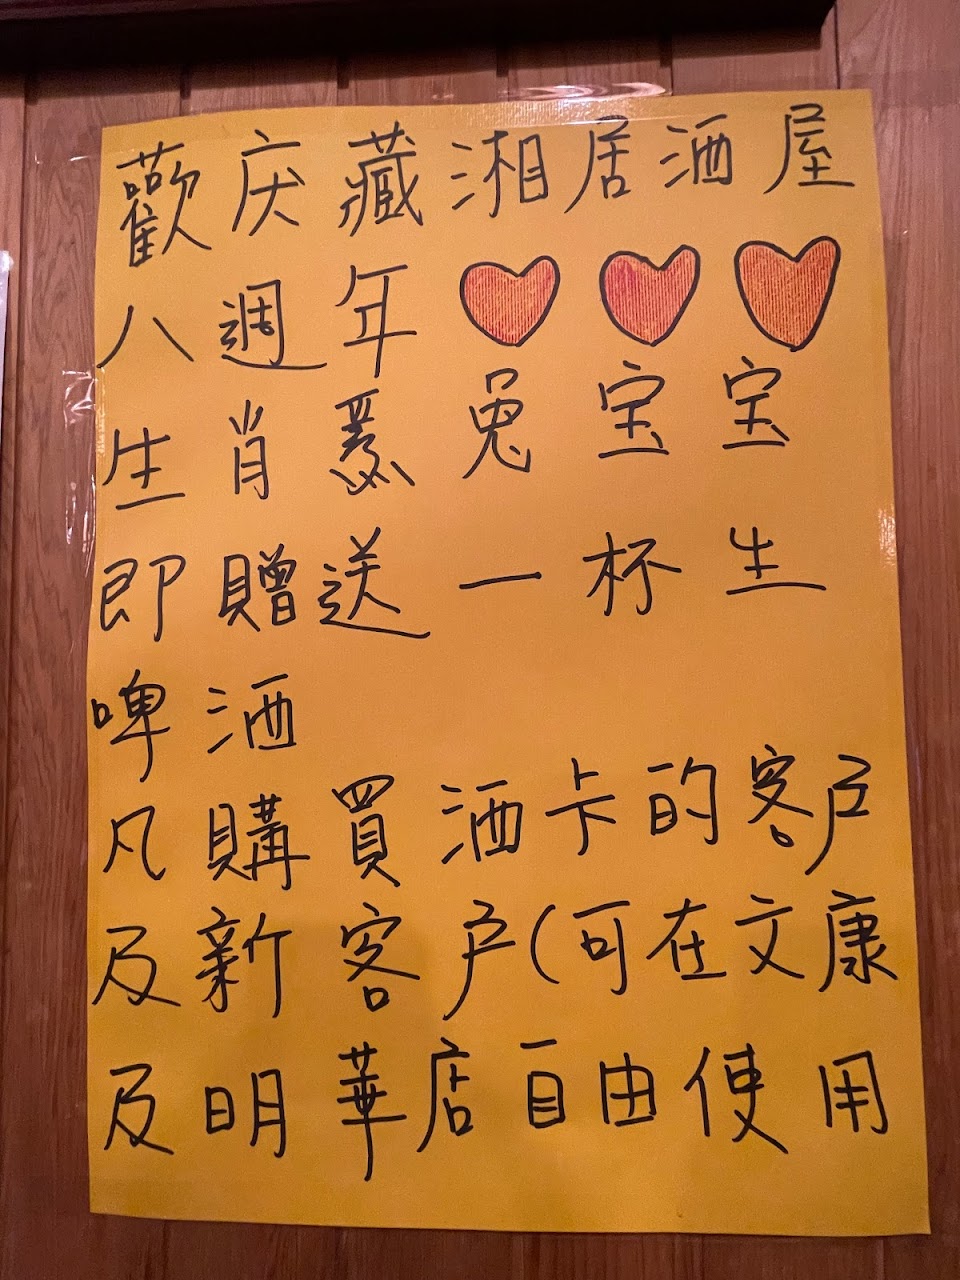 歡庆藏湘居酒屋
八週年
生肖爲兔宝宝
即贈送一杯生
啤酒
凡購買酒卡的客户
及新客户(可在文康
及明華店自由使用